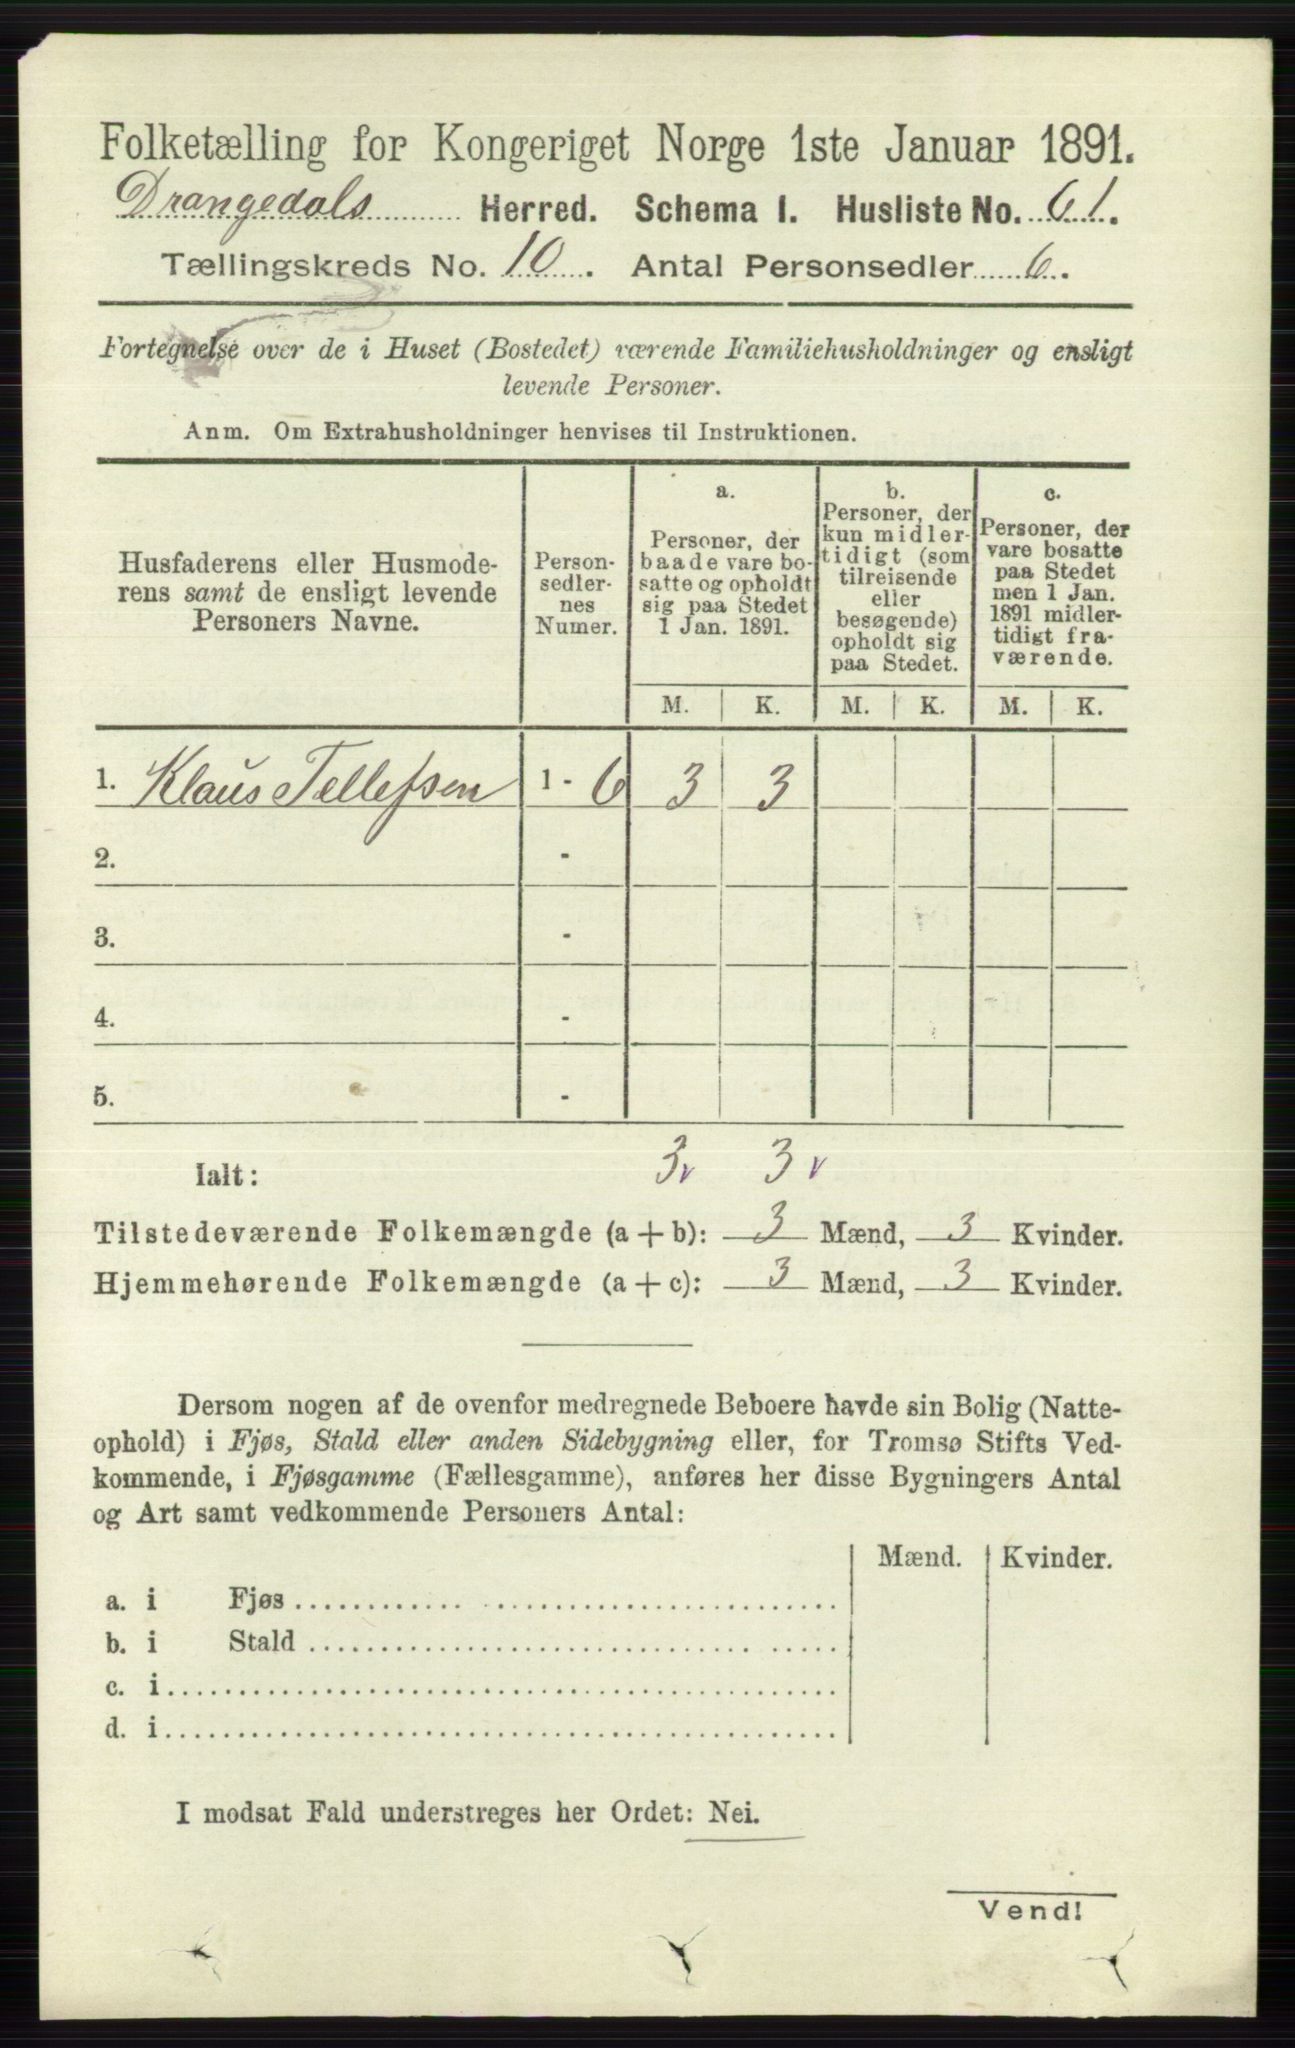 Folketælling for Kongeriget Norge 1ste Januar 1891.
Drangedals Herred. Schema I. Husliste No. 61.
Tællingskreds No. 10. Antal Personsedler 6.
Fortegnelse over de i Huset (Bostedet) værende Familiehusholdninger og ensligt
levende Personer.
Anm. Om Extrahusholdninger henvises til Instruktionen.
Husfaderens eller Husmode-
rens samt de ensligt levende
Personers Navne.
Person-
sedler-
nes
Numer.
a.
Personer, der
baade vare bo-
satte og opholdt
sig paa Stedet
1 Jan. 1891.
b.
Personer, der
kun midler-
tidigt (som
tilreisende
eller
besøgende)
opholdt sig
paa Stedet.
c.
Personer, der
vare bosatte
paa Stedet
men 1 Jan.
1891 midler-
tidigt fra-
værende.
M. K. M. K. M. K.
1. Klaus Tellefsen 1 - 6 3 3
2. -
3. -
4. -
5. -
Ialt: 3 v 3 v
Tilstedeværende Folkemængde (a + b): 3 Mænd, 3 Kvinder.
Hjemmehørende Folkemængde (a + c): 3 Mænd, 3 Kvinder.
Dersom nogen af de ovenfor medregnede Beboere havde sin Bolig (Natte-
ophold) i Fjøs, Stald eller anden Sidebygning eller, for Tromsø Stifts Ved-
kommende, i Fjøsgamme (Fællesgamme), anføres her disse Bygningers Antal
og Art samt vedkommende Personers Antal:
Mænd. Kvinder.
a. i Fjøs
b. i Stald
c. i
d. i
I modsat Fald understreges her Ordet: Nei.
Vend!